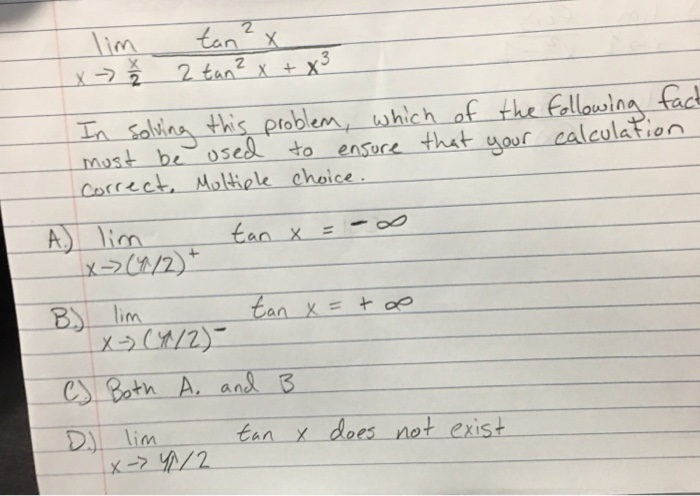 lim tan² x
x → x/2 2 tan² x + x³
In solving this problem, which of the following fact
must be used to ensure that your calculation
correct. Multiple choice.
A.) lim tan x = -∞
x→(π/2)⁺
B.) lim tan x = +∞
x→(π/2)⁻
C.) Both A. and B
D.) lim tan x does not exist
x→ π/2